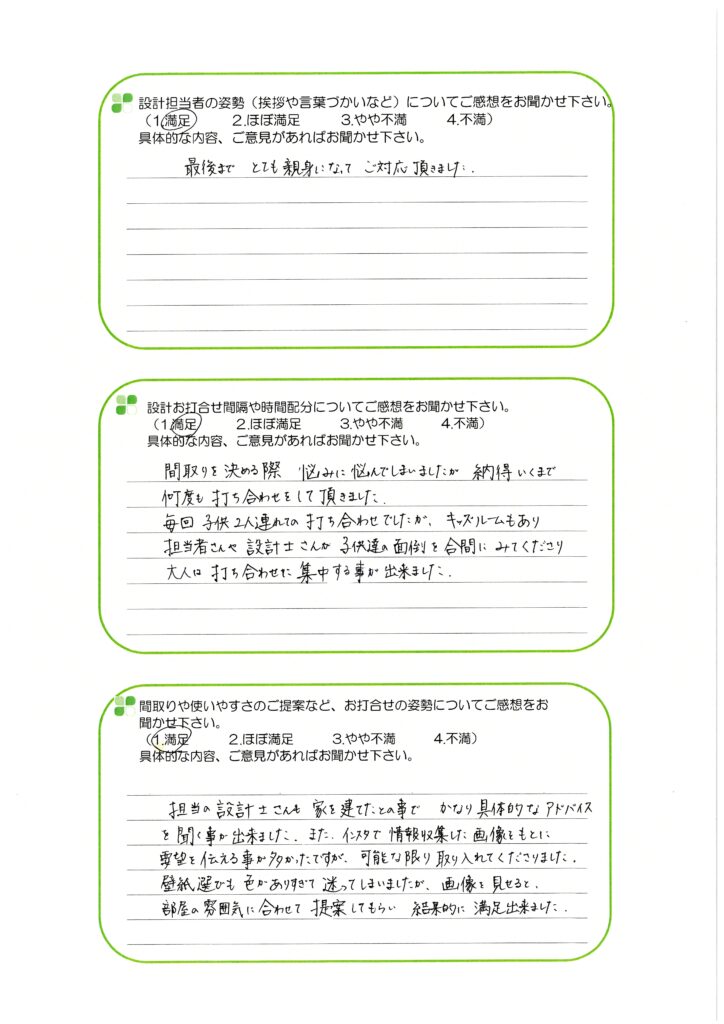 設計担当者の姿勢（挨拶や言葉づかいなど）についてご感想をお聞かせ下さい。
（1.満足　2.ほぼ満足　3.やや不満　4.不満）
具体的な内容、ご意見があればお聞かせ下さい。
最後まで とても親身になって ご対応頂きました.
設計お打合せ間隔や時間配分についてご感想をお聞かせ下さい。
（1.満足　2.ほぼ満足　3.やや不満　4.不満）
具体的な内容、ご意見があればお聞かせ下さい。
間取りを決める際 悩みに悩んでしまいましたが 納得いくまで
何度も打ち合わせをして頂きました.
毎回 子供2人連れての打ち合わせでしたが、キッズルームもあり
担当者さんや設計士さんが子供達の面倒を合間にみてくださり
大人は打ち合わせに集中する事が出来ました.
間取りや使いやすさのご提案など、お打合せの姿勢についてご感想をお
聞かせ下さい。
（1.満足　2.ほぼ満足　3.やや不満　4.不満）
具体的な内容、ご意見があればお聞かせ下さい。
担当の設計士さんも 家を建てたとの事で かなり具体的なアドバイス
を聞く事が出来ました. また、インスタで情報収集した画像をもとに
要望を伝える事が多かったですが、可能な限り取り入れてくださりました.
壁紙選びも色がありすぎて迷ってしまいましたが、画像を見せると、
部屋の雰囲気に合わせて提案してもらい 結果的に満足出来ました.